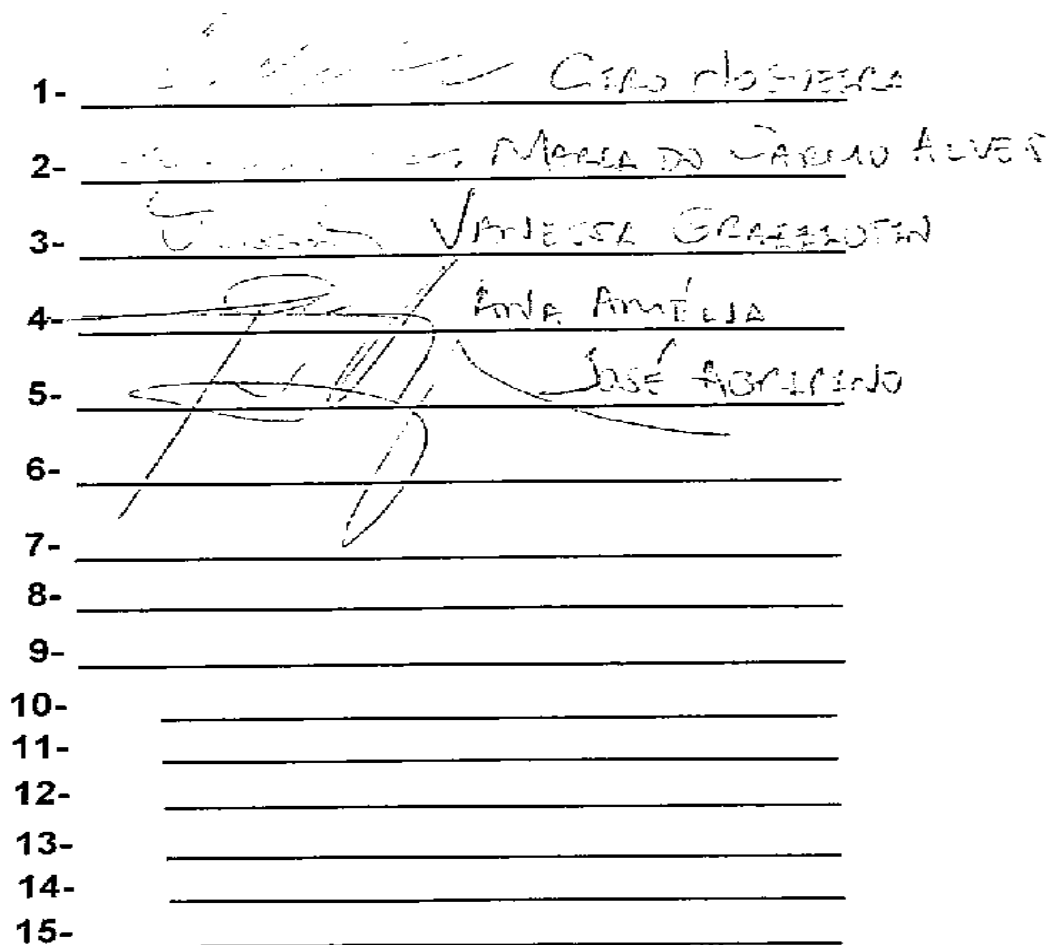 1- CIRO NOGUEIRA
2- MARIA DO CARMO ALVES
3- VANESSA GRAZZIOTIN
4- ANA AMÉLIA
5- JOSÉ AGRIPINO
6-
7-
8-
9-
10-
11-
12-
13-
14-
15-